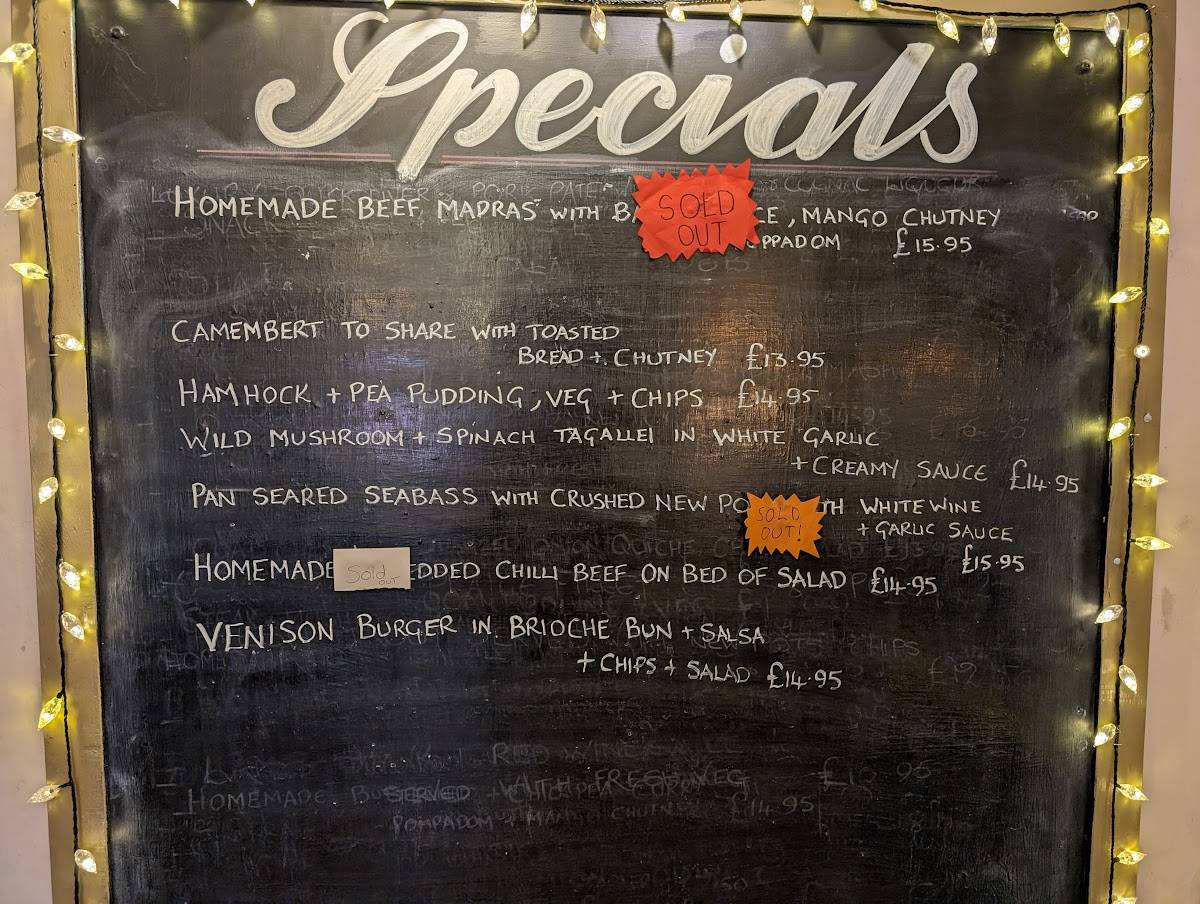 Specials
HOMEMADE BEEF MADRAS WITH B SOLD OUT CE, MANGO CHUTNEY
PPADOM £15.95
CAMEMBERT TO SHARE WITH TOASTED
BREAD + CHUTNEY £13.95
HAM HOCK + PEA PUDDING, VEG + CHIPS £14.95
WILD MUSHROOM + SPINACH TAGALLEI IN WHITE GARLIC
+ CREAMY SAUCE £14.95
PAN SEARED SEABASS WITH CRUSHED NEW PO SOLD OUT! TH WHITE WINE
+ GARLIC SAUCE
£15.95
HOMEMADE Sold OUT EDDED CHILLI BEEF ON BED OF SALAD £14.95
VENISON BURGER IN BRIOCHE BUN + SALSA
+ CHIPS + SALAD £14.95
RED WINE
WITH FRESH VEG
HOMEMADE
SERVED
POMPADOM + MANGO CHUTNEY £14.95